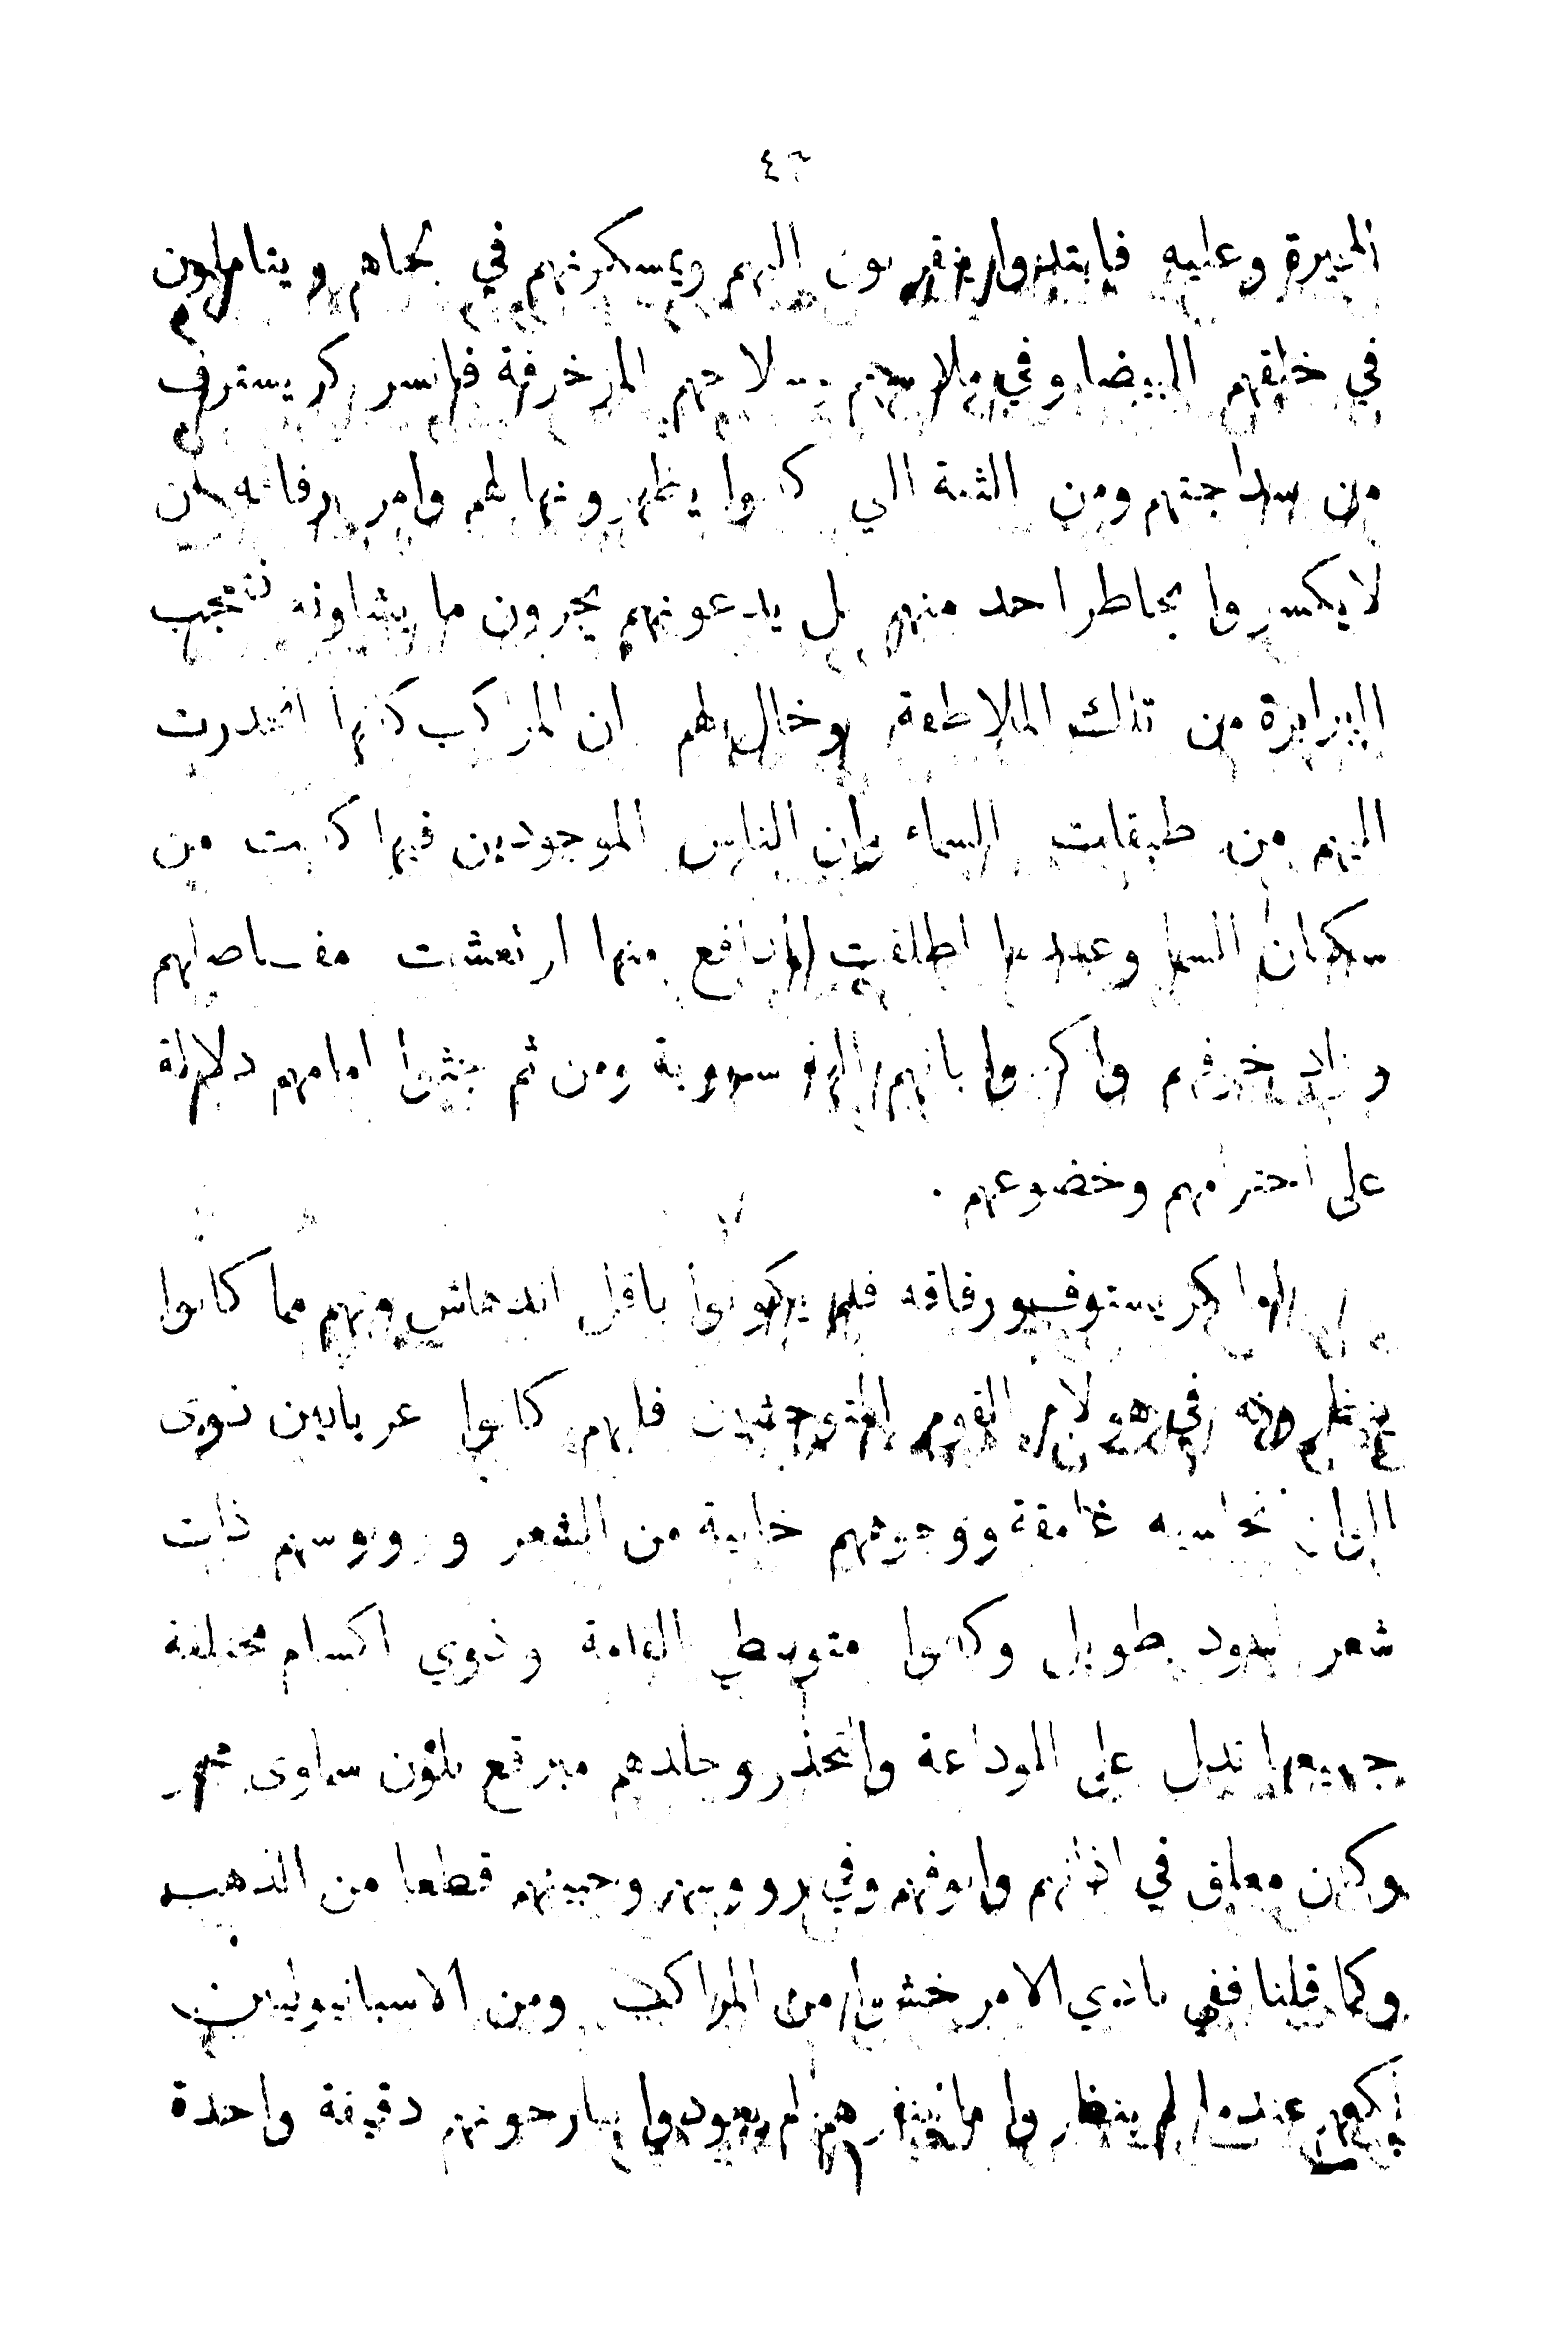 ٤٦
الحيرة وعليه فابتدوا يتقربون اليهم ويمسكونهم في لحاهم ويتاملون
في خلقهم البيضا وفي ملابسهم وسلاحهم المزخرفة فانسر كريستوف
من سداجتهم ومن الثقة التي كانوا يظهرونها لهم وامر رفاقه بان
لا يكسروا بخاطر احد منهم بل يدعونهم يجرون ما يشاونه فتعجب
البرابرة من تلك الملاطفة وخال لهم ان المراكب كانها انحدرت
اليهم من طبقات السماء وان الناس الموجودين فيها كانت من
سكان السما وعندما اطلقت المدافع منها ارتعشت مفاصلهم
وزاد خوفهم وافكروا بانهم الهة سموية ومن ثم جثوا امامهم دلالة
على احترامهم وخضوعهم .
كريستوف ورفاقه فلم يكونوا باقل اندهاش منهم مما كانوا
ينظرونه في هولاء القوم المتوحشين فانهم كانوا عريانين ذوى
الوان نحاسيه غامقة ووجوههم خالية من الشعر ورووسهم ذات
شعر اسود طويل وكانوا متوسطي القامة وذوي اكسام مختلفة
جميعها تدل على الوداعة والحذر وجلدهم مبرقع بلون سماوى
وكان معلق في اذانهم وانوفهم وفي رووسهم وجبينهم قطعا من الذهب
وكما قلنا ففي بادي الامر خشيوا من المراكب ومن الاسبانيوليين
لكنهم عندما لم ينظروا ما ينفرهم لم يعودوا يبارحونهم دقيقة واحدة